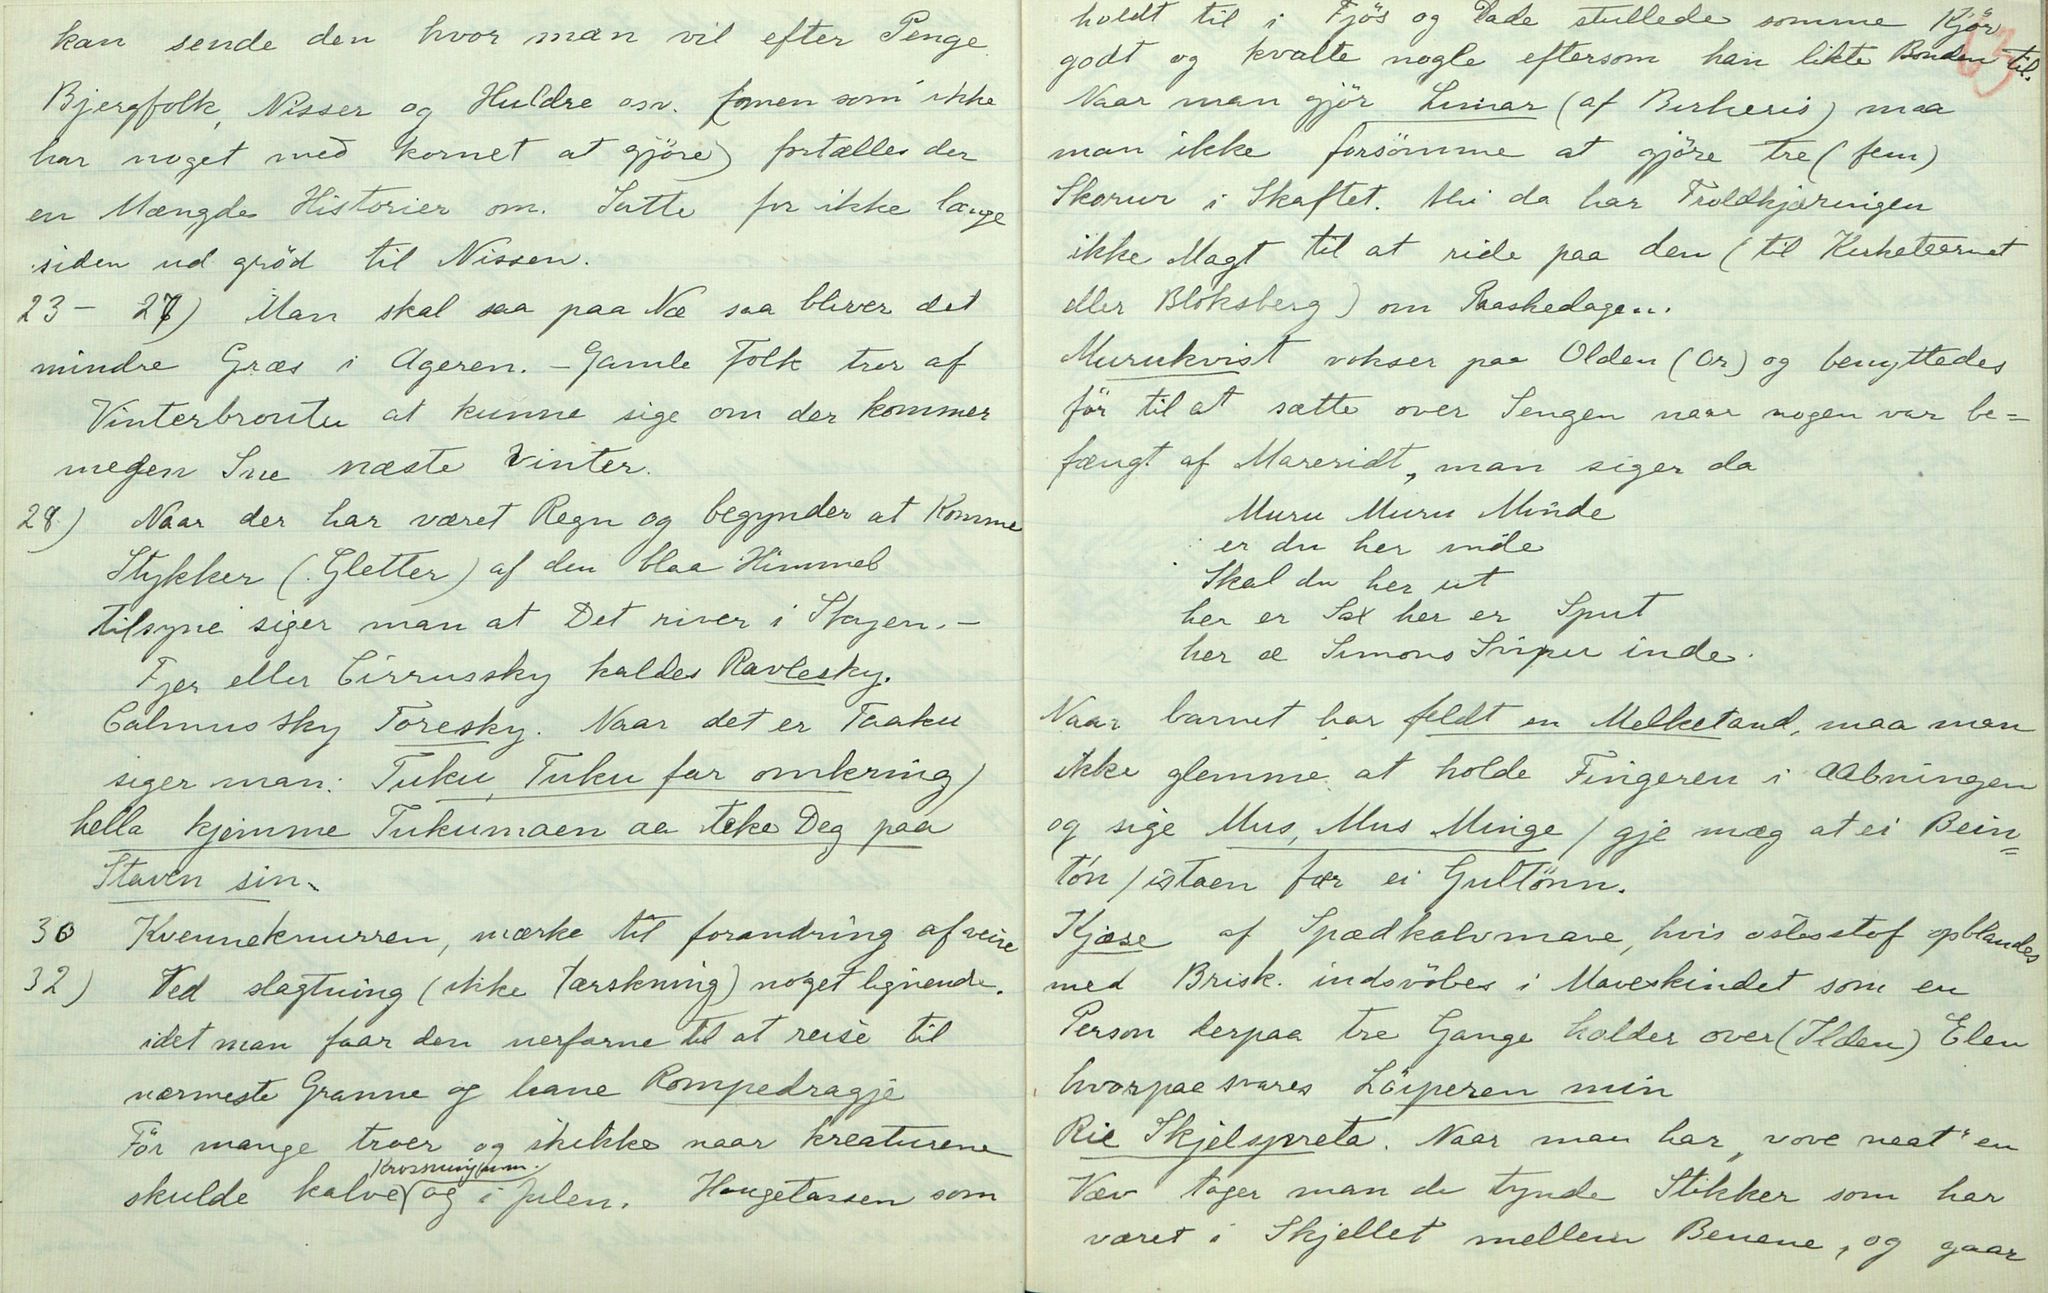 kan sende den hvor man vil efter Penge
Bjergfolk, Nisser og Huldre osv. (men som ikke
har noget med kornet at gjöre) fortælles der
en Mængde Historier om. Satte for ikke længe
siden ud gröd til Nissen.
23 - 27) Man skal saa paa Næ saa bliver det
mindre Græs i Ageren. - Gamle Folk tror af
Vinterbrouta at kunne sige om der kommer
megen Sne næste Vinter.
28) Naar der har været Regn og begynder at Komme
Stykker (Gletter) af den blaa Himmel
tilsyne siger man at Det river i Skyen. -
Fjer eller Cirrussky kaldes Ravlesky.
Calmus sky Toresky. Naar det er Taaku
siger man: Tuku, Tuku far omkring /
hella kjemme Tukumaen aa teke Deg paa
Staven sin.
30 Kvenneknurren, mærke til forandring af veire
32) Ved slagtning (ikke Tærskning) noget lignende.
idet man faar den uerfarne til at reise til
nærmeste Granne og laane Rompedragje
För mange troer og skikke naar kreaturene
Krossmyssum.
skulde kalve og i Julen. Haugetassen som
holdt til i Fjös og Lade stullede somme Kjör
godt og kvalte nogle eftersom han likte Bonden til.
Naar man gjör Limar (af Birkeris) maa
man ikke forsömme at gjöre tre (fem)
Skorur i Skaftet. thi da har Troldkjæringen
ikke Magt til at ride paa den (til Kirketaarnet
eller Bloksberg) om Paaskedagen.
Murukvist vokser paa Olden (Or) og benyttedes
för til at sætte over Sengen naar nogen var be=
fængt af Mareridt, man siger da
Muru Muru Minde
er du her inde
Skal du her ut
her er Sax her er Sput
her æ Simons Svipu inde.
Naar barnet har feldt en Melketand, maa man
ikke glemme at holde Fingeren i Aabningen
og sige Mus, Mus Minge / gje mæg at ei Bein=
tön / istaen fær ei Gultönn.
Kjæse af Spædkalvmave, hvis ostesstof opblandes
med Brisk. indsvöbes i Maveskindet som en
Person derpaa tre Gange holder over (Ilden) Elen
hvorpaa svares Löiperen min
Rie Skjelspreta. Naar man har "vove neat" en
Væv tager man de tynde Stikker som har
været i Skjellet mellem Benene, og gaar